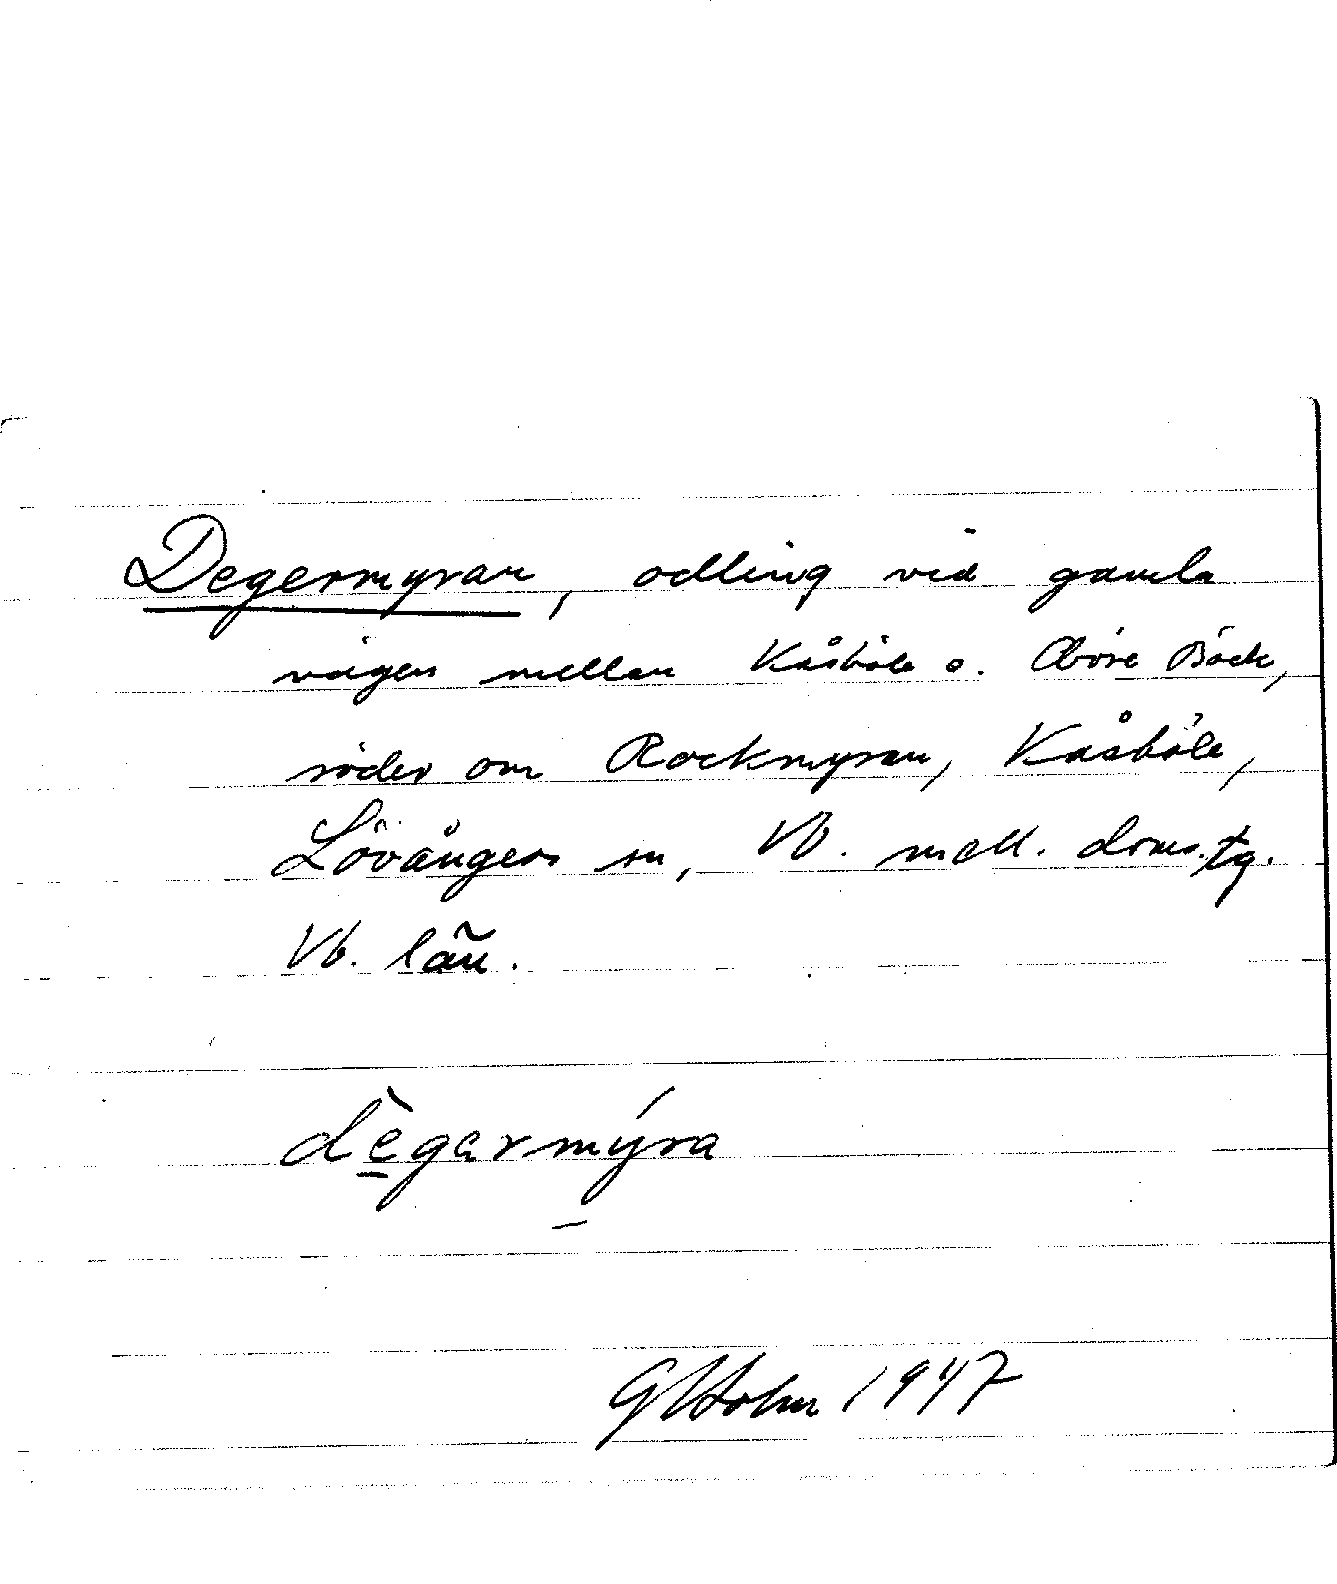 Degermyran, odling vid gamla
vägen mellan Kåsböle o. Böck,
söder om Rockmyran, Kåsböle,
Lövångers sn, Vb. mell. doms.tg.
Vb. län.
dègarmýra
GHolm 1947